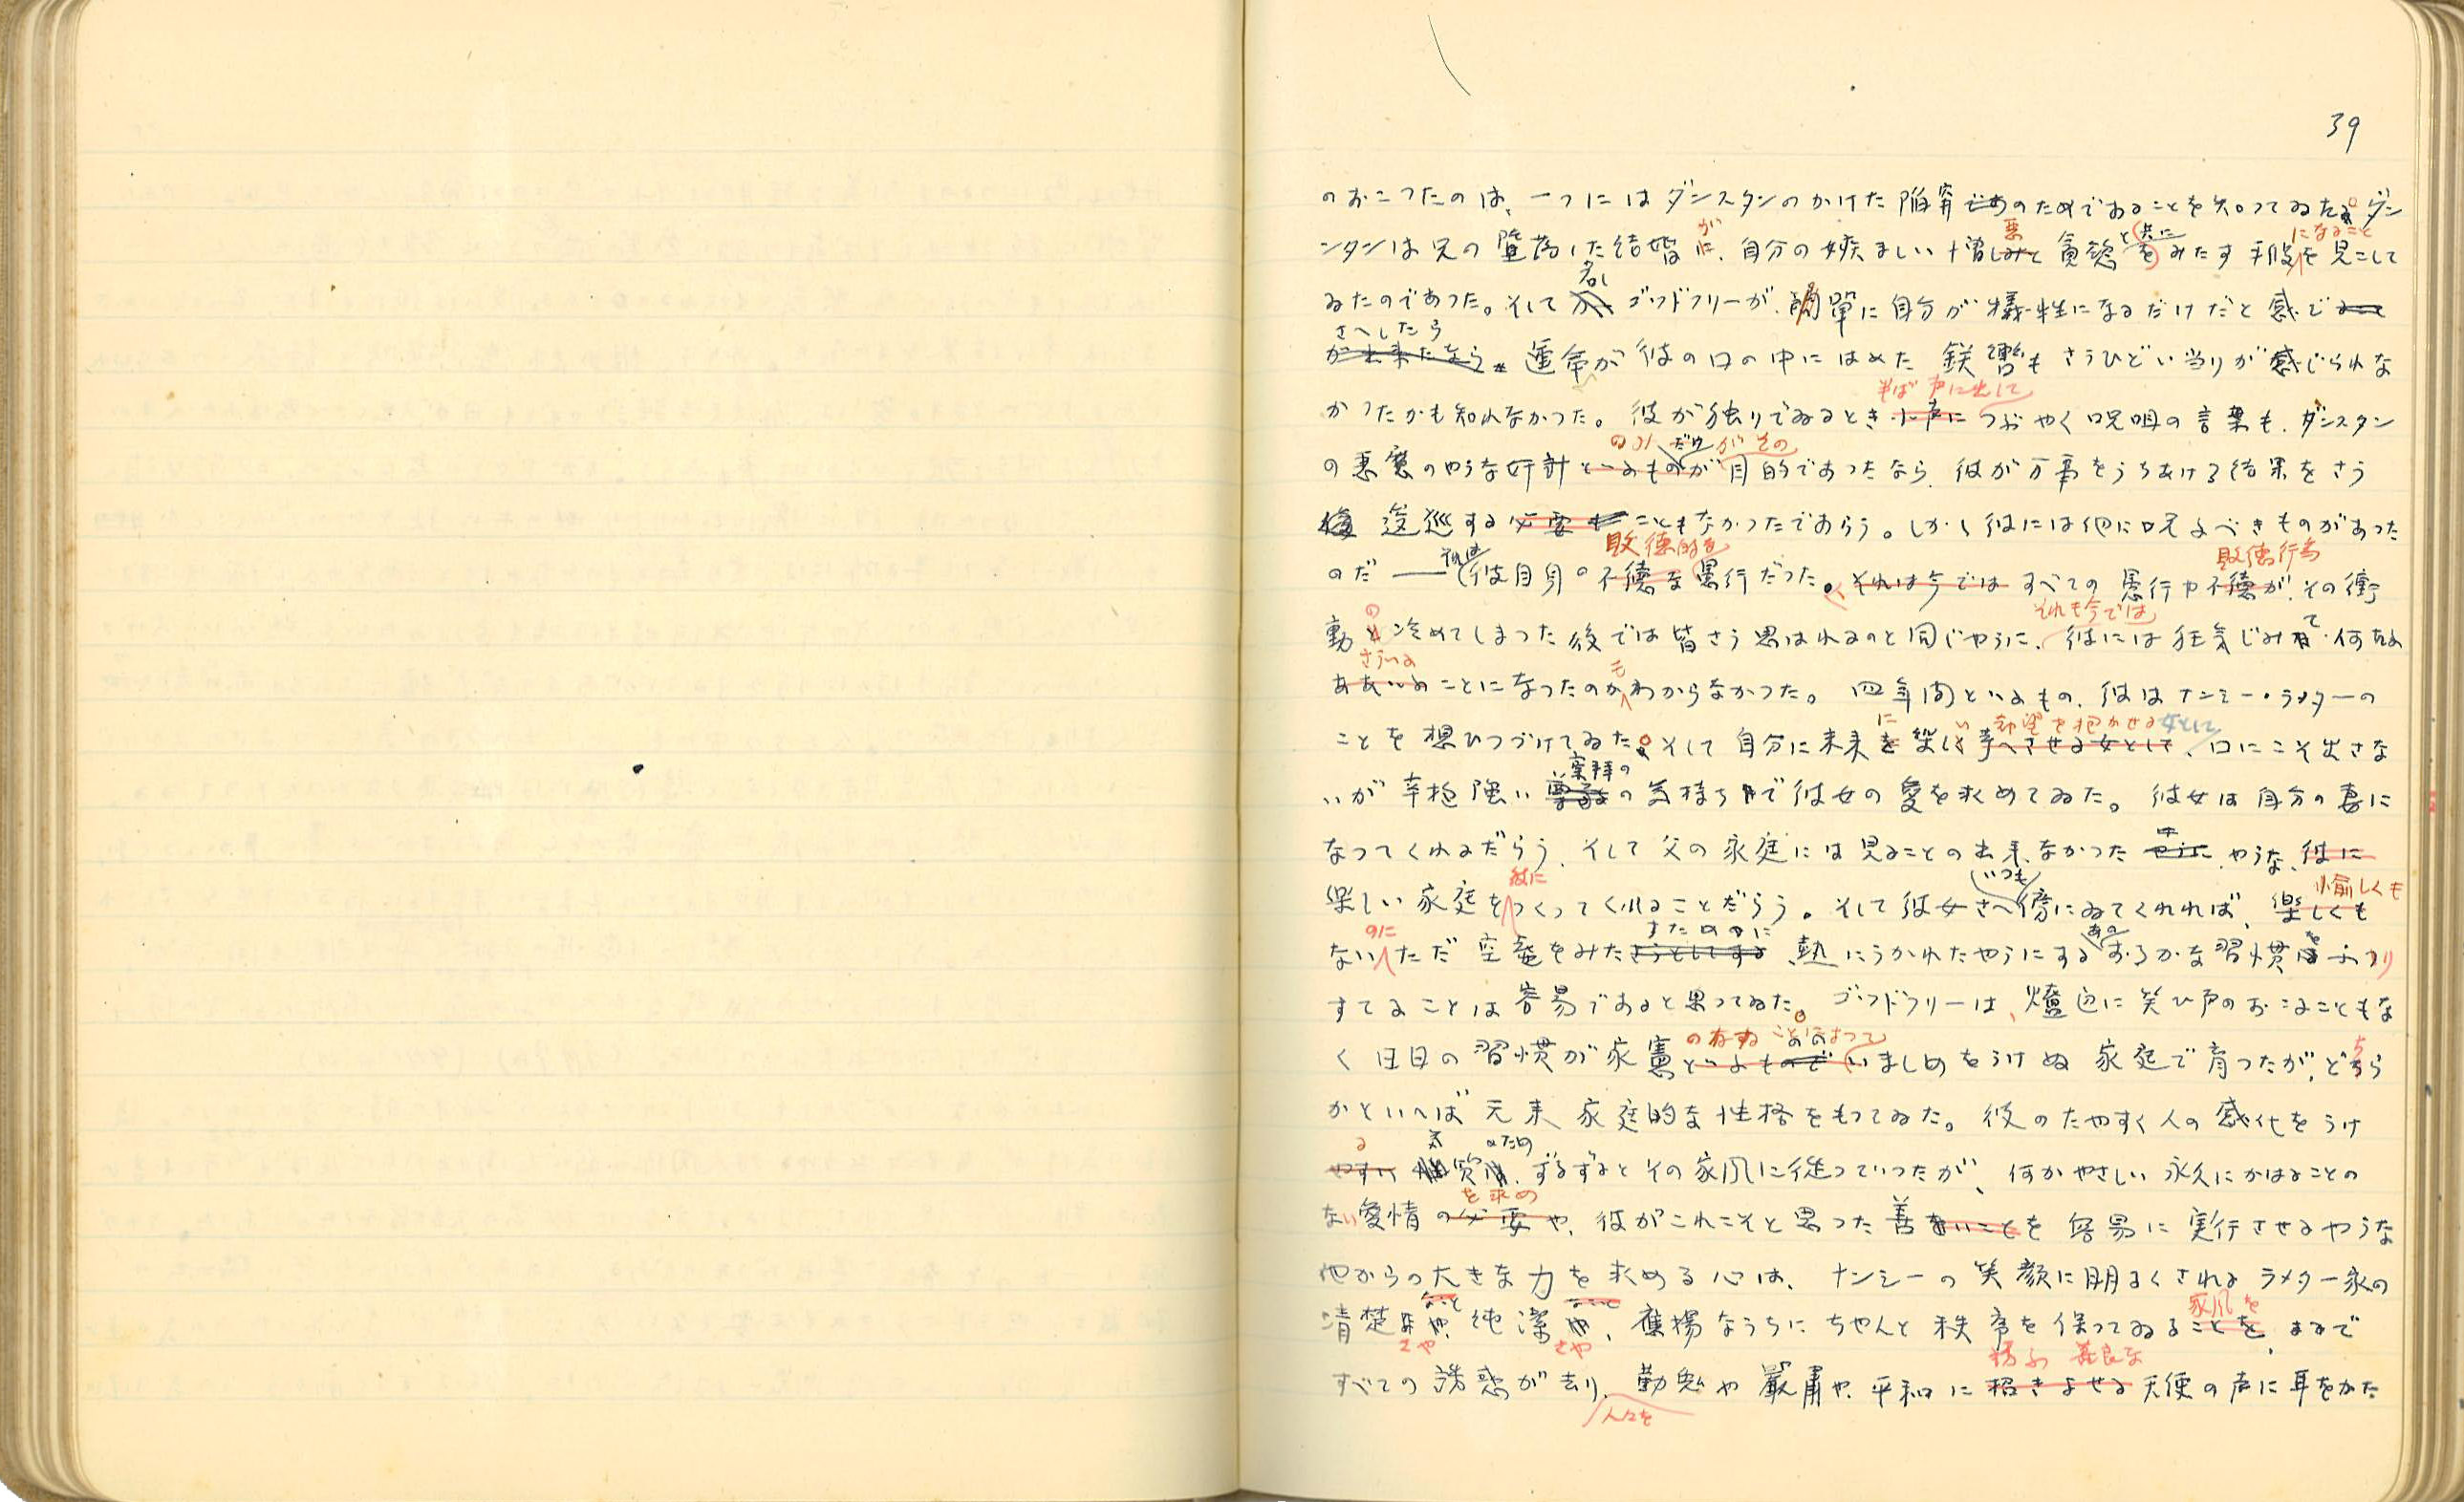 39
のおこつたのは、一つにはダンスタンのかけた陥穽であのためであることを知つてゐた。ダン
が 悪 と共に になること
ンタンは兄の堕落した結婚は、自分の嫉ましい憎しみと貪慾をみたす手段を見こして
若し
ゐたのであつた。そして ゴッドフリーが、簡單に自分が犠牲になるだけだと感で
さへしたら
が出来たなら 運命が彼の口の中にはめた鉄轡もさうひどい当りが感じられな
半ば声に出して
かつたかも知れなかつた。彼が独りでゐるとき小声につぶやく呪咀の言葉も、ダンスタン
のみ だけ がその
の悪魔のやうな奸計といふものが目的であつたなら、彼が万事をうちあける結果をさう
逡巡する必要も こともなかつたであらう。しかし彼には他に呪ふべきものがあつた
それは 敗徳的な 敗徳行為
のだ――彼自身の不徳な愚行だつた。それは今では すべての愚行や不徳が、その衝
の それも今では
動と冷めてしまつた後では皆さう思はれるのと同じやうに、彼には狂気じみて 何故
さういふ も
ああいふことになつたのかわからなかつた。四年間といふもの、彼はナンシー・ラメターの
に い 希望を抱かせる女として
ことを想ひつづけてゐた。そして自分に未来を楽しく考へさせる女として、口にこそ出さな
崇拝の
いが辛抱強い尊敬の気持ちで彼女の愛を求めてゐた。彼女は自分の妻に
なつてくれるだらう、そして父の家庭には見ることの出来なかつた やうに やうな、彼に
彼に いつも 愉しくも
楽しい家庭をつくつてくれることだらう。そして彼女さへ傍にゐてくれれば、楽しくも
のに すためのに あの を
ない ただ空虚をみたさうとしてする 熱にうかれたやうにするおろかな習慣は ふり
すてることは容易であると思つてゐた。ゴッドフリーは、爐辺に笑ひ声のおこることもな
ことによつて ち
く日日の習慣が家憲といふもので いましめをうけぬ家庭で育つたが、どちら
かといへば元来家庭的な性格をもつてゐた。彼のたやすく人の感化をうけ
る 気 のため
やすい 質は、ずるずるとその家風に従つていつたが、何かやさしい永久にかはることの
を求め
ない愛情の必要や、彼がこれこそと思つた善いことを容易に実行させるやうな
他からの大きな力を求める心は、ナンシーの笑顔に明るくされるラメター家の
家風を
清楚 や、純潔 や、鷹揚なうちにちやんと秩序を保つてゐることを、まるで
さや さや 善良な
すべての誘惑が去り、勤勉や嚴肅や、平和に招きよせる天使の声に耳をかた
人々を